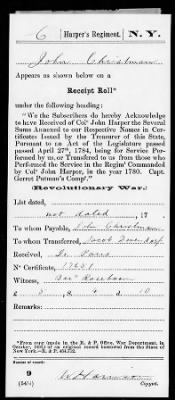 6 Harper's Regiment. N. Y.
John Christman
Appears as shown below on a
Receipt Roll*
under the following heading:
"We the Subscribers do hereby Acknowledge
to have Received of Col° John Harper the Several
Sums Annexed to our Respective Names in Cer-
tificates Issued by the Treasurer of this State,
Pursuant to an Act of the Legislature passed
passed April 27th, 1784, being for Service Per-
formed by us, or Transferred to us from those who
Performed the Service in the Regim' Commanded
by Col° John Harper, in the year 1780. Capt.
Garret Putman's Comp."
(Revolutionary War.)
List dated,
not dated, 17 .
To whom Payable, John Christman
To whom Transferred, Jacob
Received,
N° Certificate,
Witness,
£ 3, 4 10
*From copy (made in the R. & P. Office, War Department, in
October, of an original record borrowed from the State of
New York—R. & P.
9
(545) Copyist.